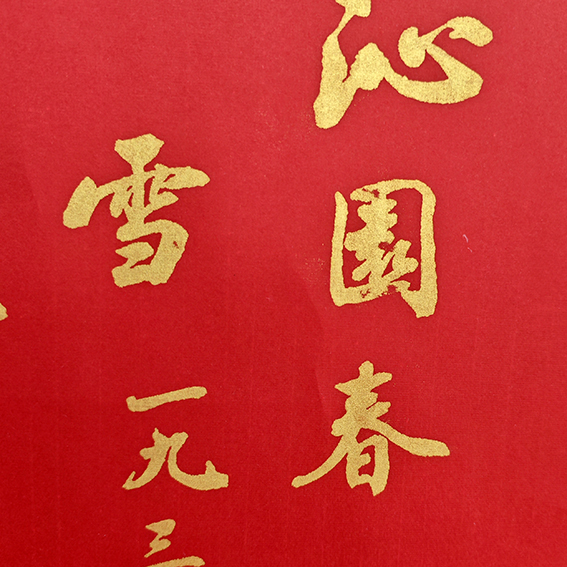 沁園春
雪
一九三